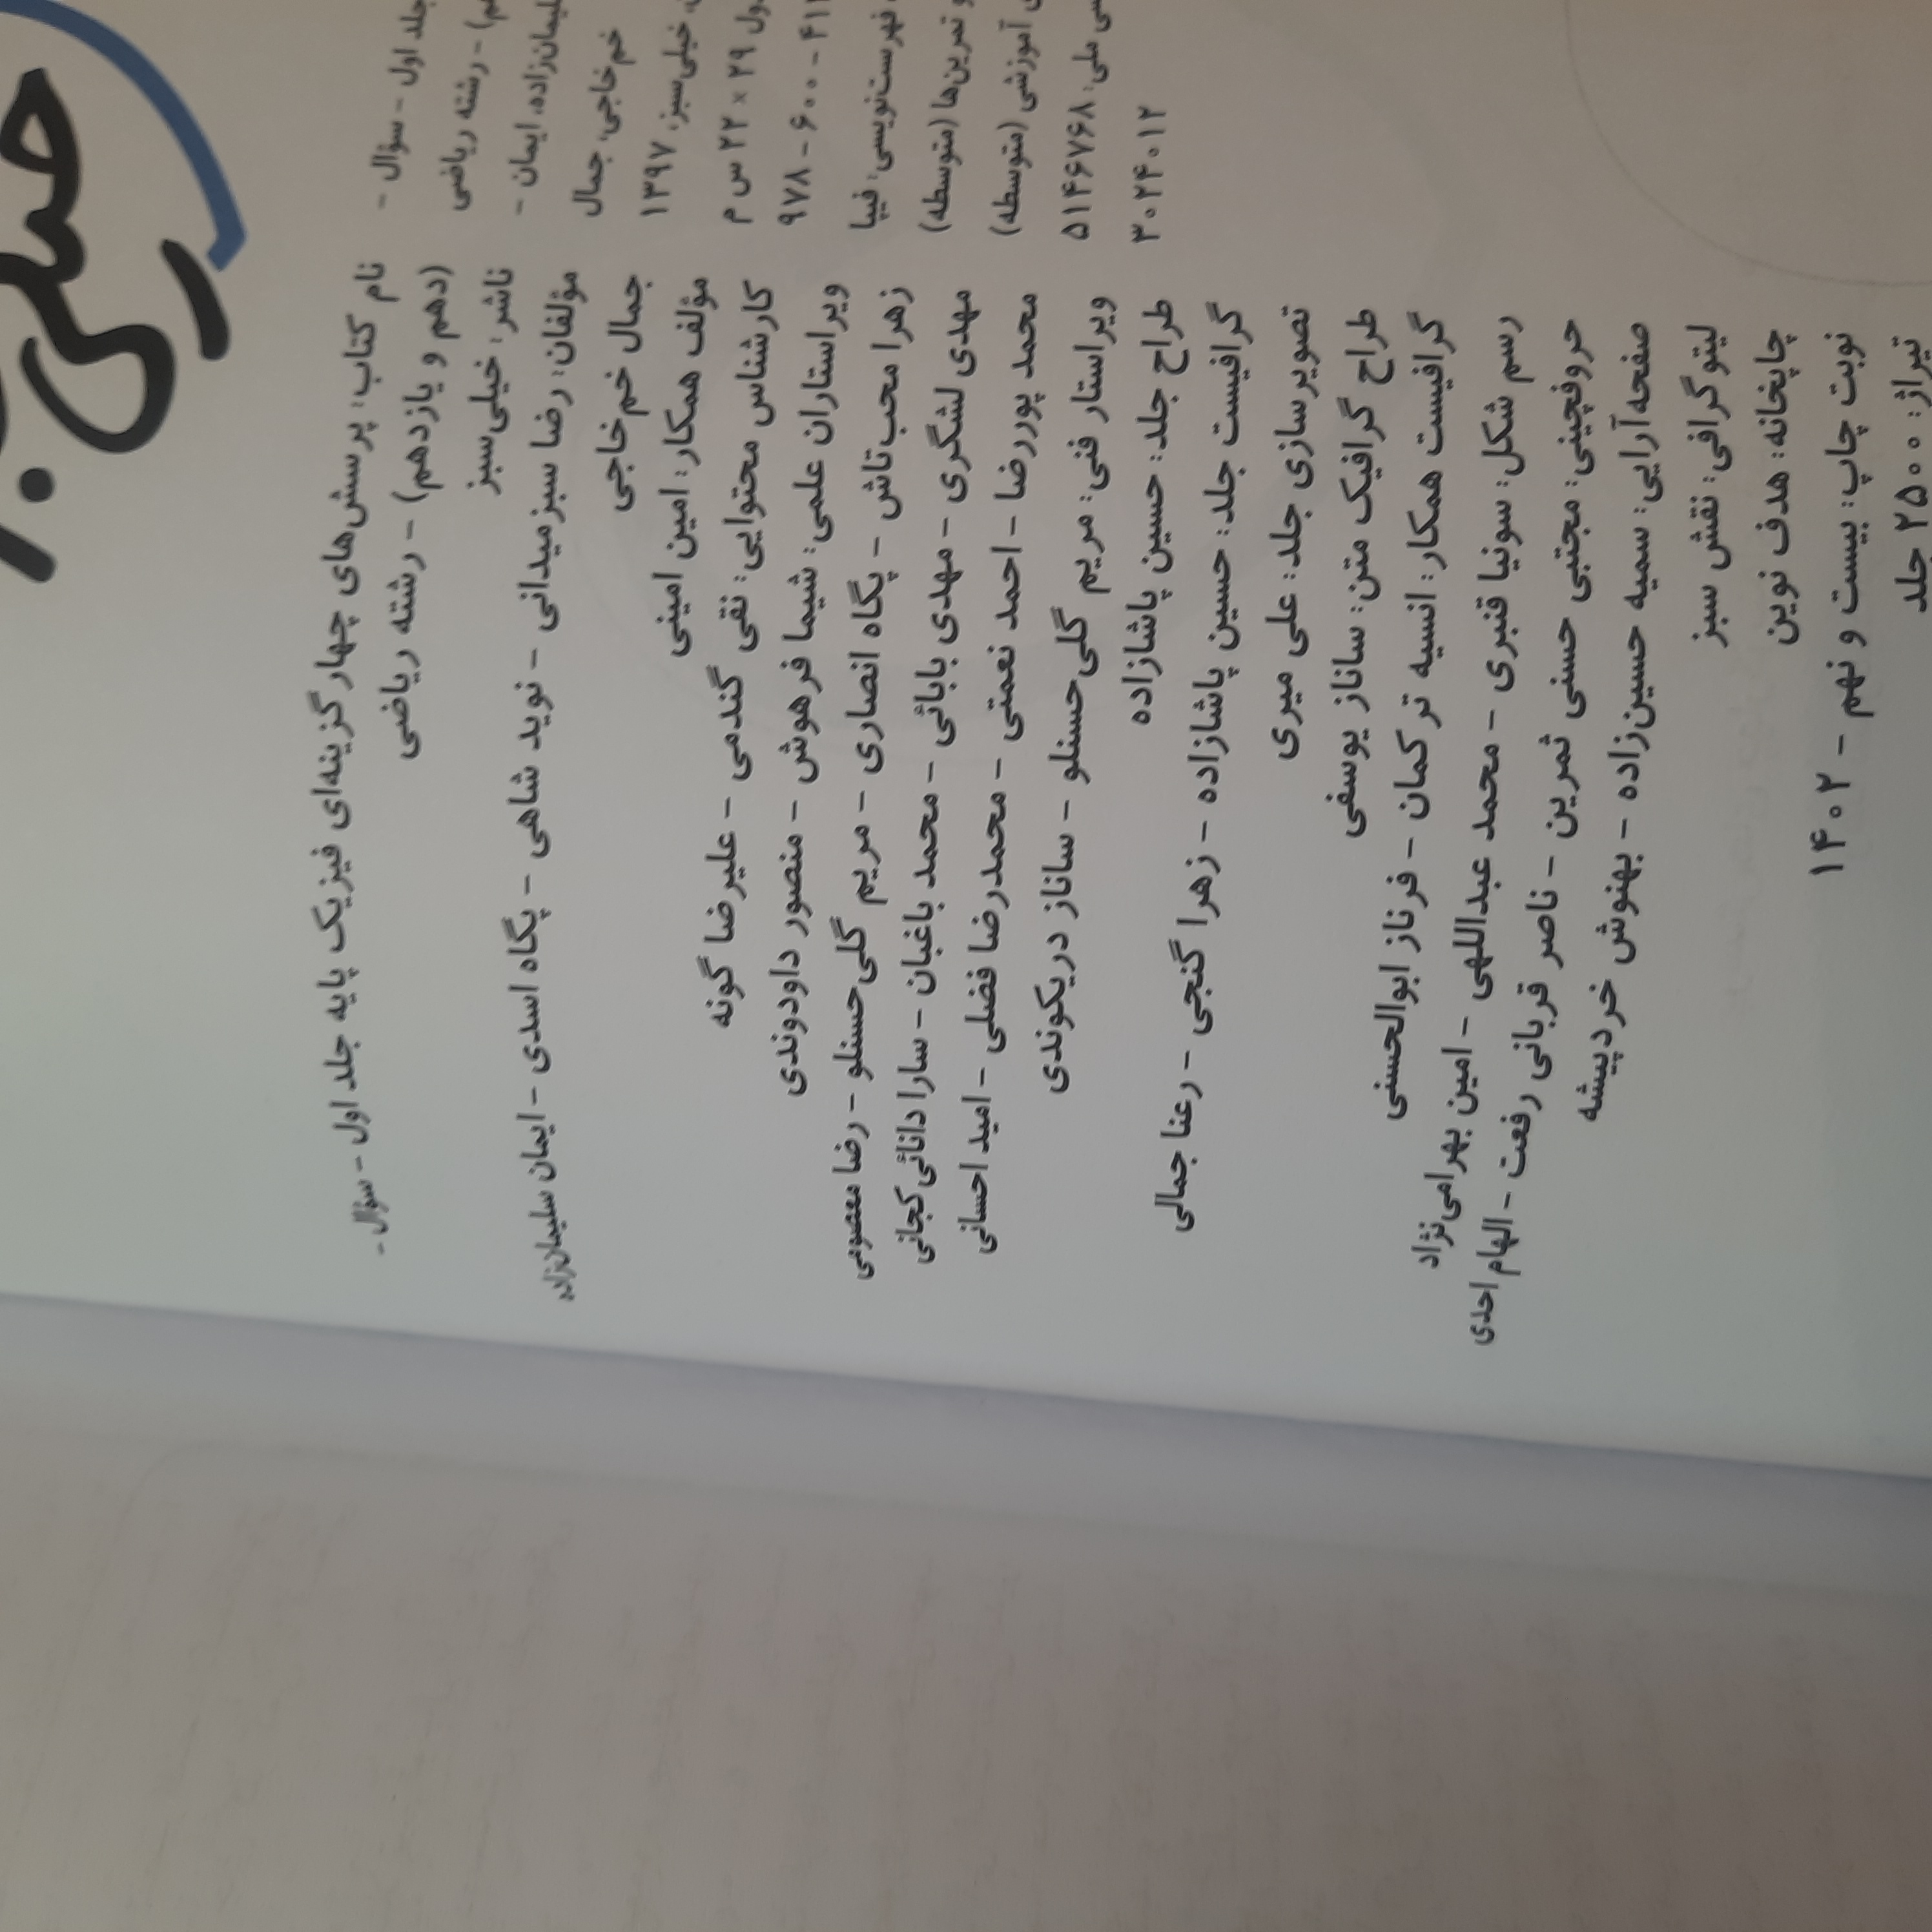 خیلی
نام کتاب: پرسش‌های چهارگزینه‌ای فیزیک پایه جلد اول - سؤال -
(دهم و یازدهم) - رشته ریاضی
ناشر: خیلی‌سبز
مؤلفان: رضا سبزمیدانی - نوید شاهی - پگاه اسدی - ایمان سلیمان‌زاده
جمال خم‌خاجی
مؤلف همکار: امین امینی
کارشناس محتوایی: نقی گندمی - علیرضا گونه
ویراستاران علمی: شیما فرهوش - منصور داودوندی
زهرا محب‌تاش - پگاه انصاری - مریم گلی‌حسنلو - رضا معصومی
مهدی لشگری - مهدی بابائی - محمد باغبان - سارا دانائی‌کجانی
محمد پوررضا - احمد نعمتی - محمدرضا فضلی - امید احسانی
ویراستار فنی: مریم گلی‌حسنلو - ساناز دریکوندی
طراح جلد: حسین پاشازاده
گرافیست جلد: حسین پاشازاده - زهرا گنجی - رعنا جمالی
تصویرسازی جلد: علی میری
طراح گرافیک متن: ساناز یوسفی
گرافیست همکار: انسیه ترکمان - فرناز ابوالحسنی
رسم شکل: سونیا قنبری - محمد عبداللهی - امین بهرامی‌نژاد
حروفچینی: مجتبی حسنی ثمرین - ناصر قربانی رفعت - الهام احدی
صفحه‌آرایی: سمیه حسین‌زاده - بهنوش خردپیشه
لیتوگرافی: نقش سبز
چاپخانه: هدف نوین
نوبت چاپ: بیست و نهم - ۱۴۰۲
تیراژ: ۲۵۰۰ جلد
جلد اول - سؤال -
- رشته ریاضی
سلیمان‌زاده، ایمان -
خم‌خاجی، جمال
خیلی‌سبز، ۱۳۹۷
۲۲ × ۲۹ س م
۹۷۸ - ۶۰۰ - ۴۱۱
فهرست‌نویسی: فیپا
و تمرین‌ها (متوسطه)
آموزشی (متوسطه)
ملی: ۵۱۴۶۷۶۸
۳۰۲۴۰۱۲